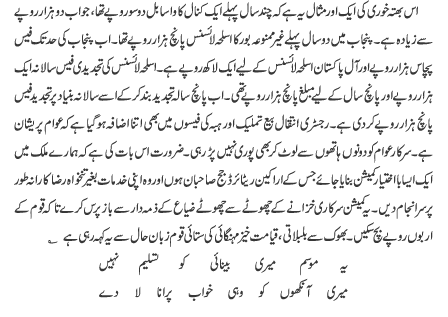 اس بھتہ خوری کی ایک اور مثال یہ ہے کہ چند سال پہلے ایک کنال کا واسا بل دو سو روپے تھا، جو اب دو ہزار روپے
سے زیادہ ہے۔ پنجاب میں دو سال پہلے غیر ممنوعہ بور کا اسلحہ لائسنس پانچ ہزار روپے تھا۔ اب پنجاب کی حد تک فیس
پچاس ہزار روپے اور آل پاکستان اسلحہ لائسنس کے لیے ایک لاکھ روپے ہے۔ اسلحہ لائسنس کی تجدیدی فیس سالانہ ایک
ہزار روپے اور پانچ سال کے لیے مبلغ پانچ ہزار روپے تھی۔ اب پانچ سالہ تجدید بند کر کے اسے سالانہ بنیاد پر تجدید فیس
پانچ ہزار روپے کر دی ہے۔ رجسٹری انتقال بیع تملیک اور ہبہ کی فیسوں میں بھی اتنا اضافہ ہو گیا ہے کہ عوام پریشان
ہے۔ سرکار عوام کو دونوں ہاتھوں سے لوٹ کر بھی پوری نہیں پڑ رہی۔ ضرورت اس بات کی ہے کہ ہمارے ملک میں
ایک ایسا با اختیار کمیشن بنایا جائے جس کے اراکین ریٹائرڈ جج صاحبان ہوں اور وہ اپنی خدمات بغیر تنخواہ رضا کارانہ طور
پر سرانجام دیں۔ یہ کمیشن سرکاری خزانے کے چھوٹے سے چھوٹے ضیاع کے ذمہ دار سے باز پرس کرے تاکہ قوم کے
اربوں روپے بچ سکیں۔ بھوک سے بلبلاتی، قیامت خیز مہنگائی کی ستائی قوم زبان حال سے یہ کہہ رہی ہے ؎
یہ موسم میری بینائی کو تسلیم نہیں
میری آنکھوں کو وہی خواب پرانا لا دے